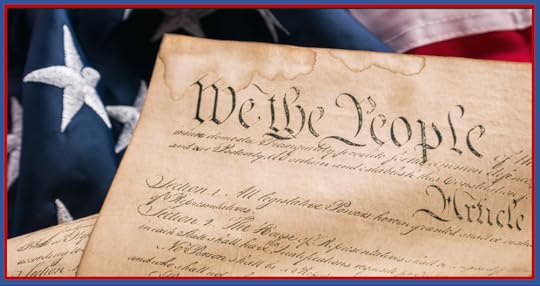 We the People of the
insure domestic Tranquility, provide for the common defence,
and our Posterity, do ordain and establish this Constitution
Article
Section 1. All legislative Powers herein granted shall be vested
of Representatives.
Section 2. The House of Representatives shall be composed
in each State shall have the Qualifications requisite for
No Person shall be a Re
and who shall not